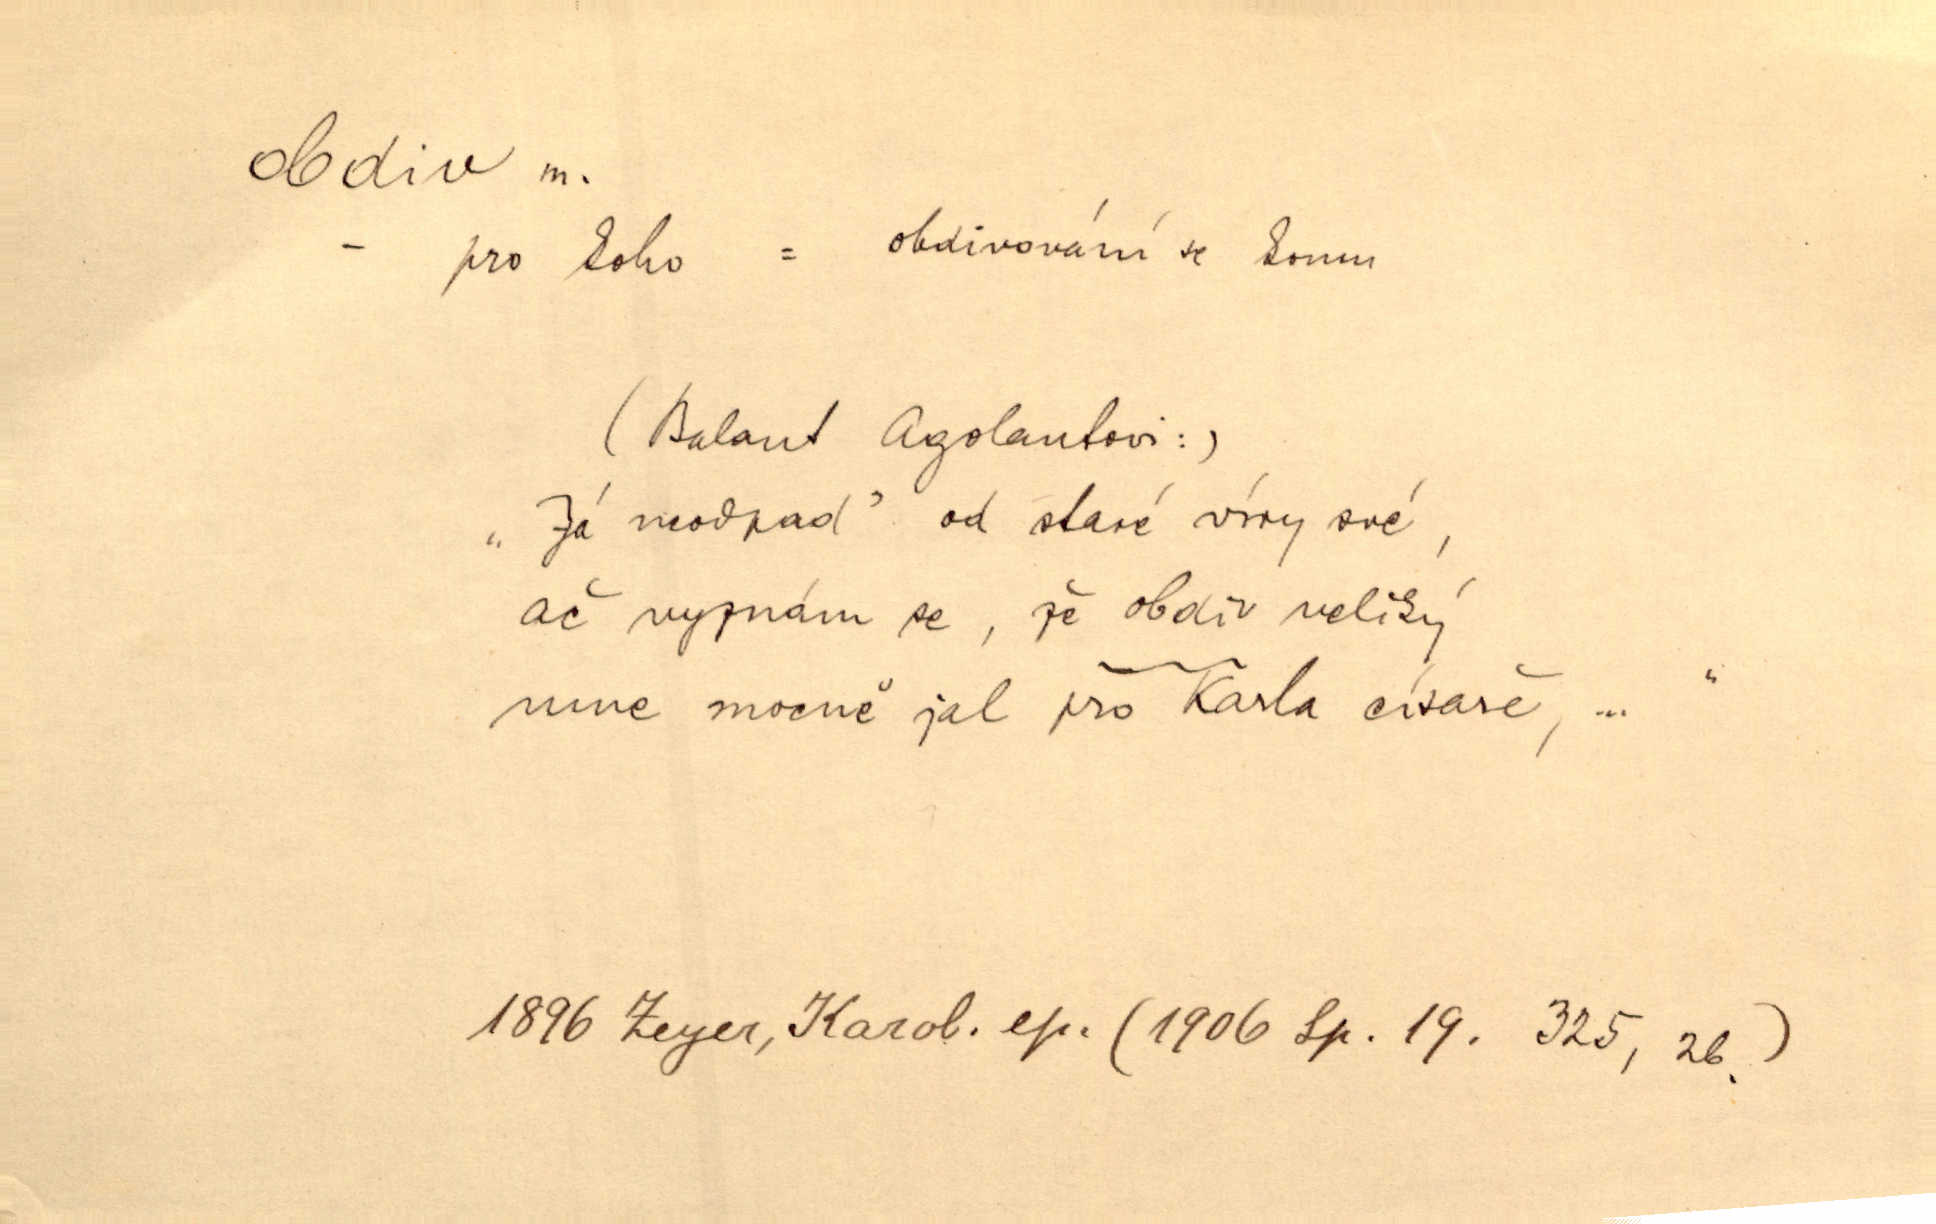 obdiv m.
- pro koho = obdivování se komu
(Balant Agolantovi:)
„Já neodpad' od staré víry své,
ač vyznám se, že obdiv veliký
mne mocně jal pro Karla císaře, ... "
1896 Zeyer, Karol. ep. (1906 Sp. 19. 325, 26.)